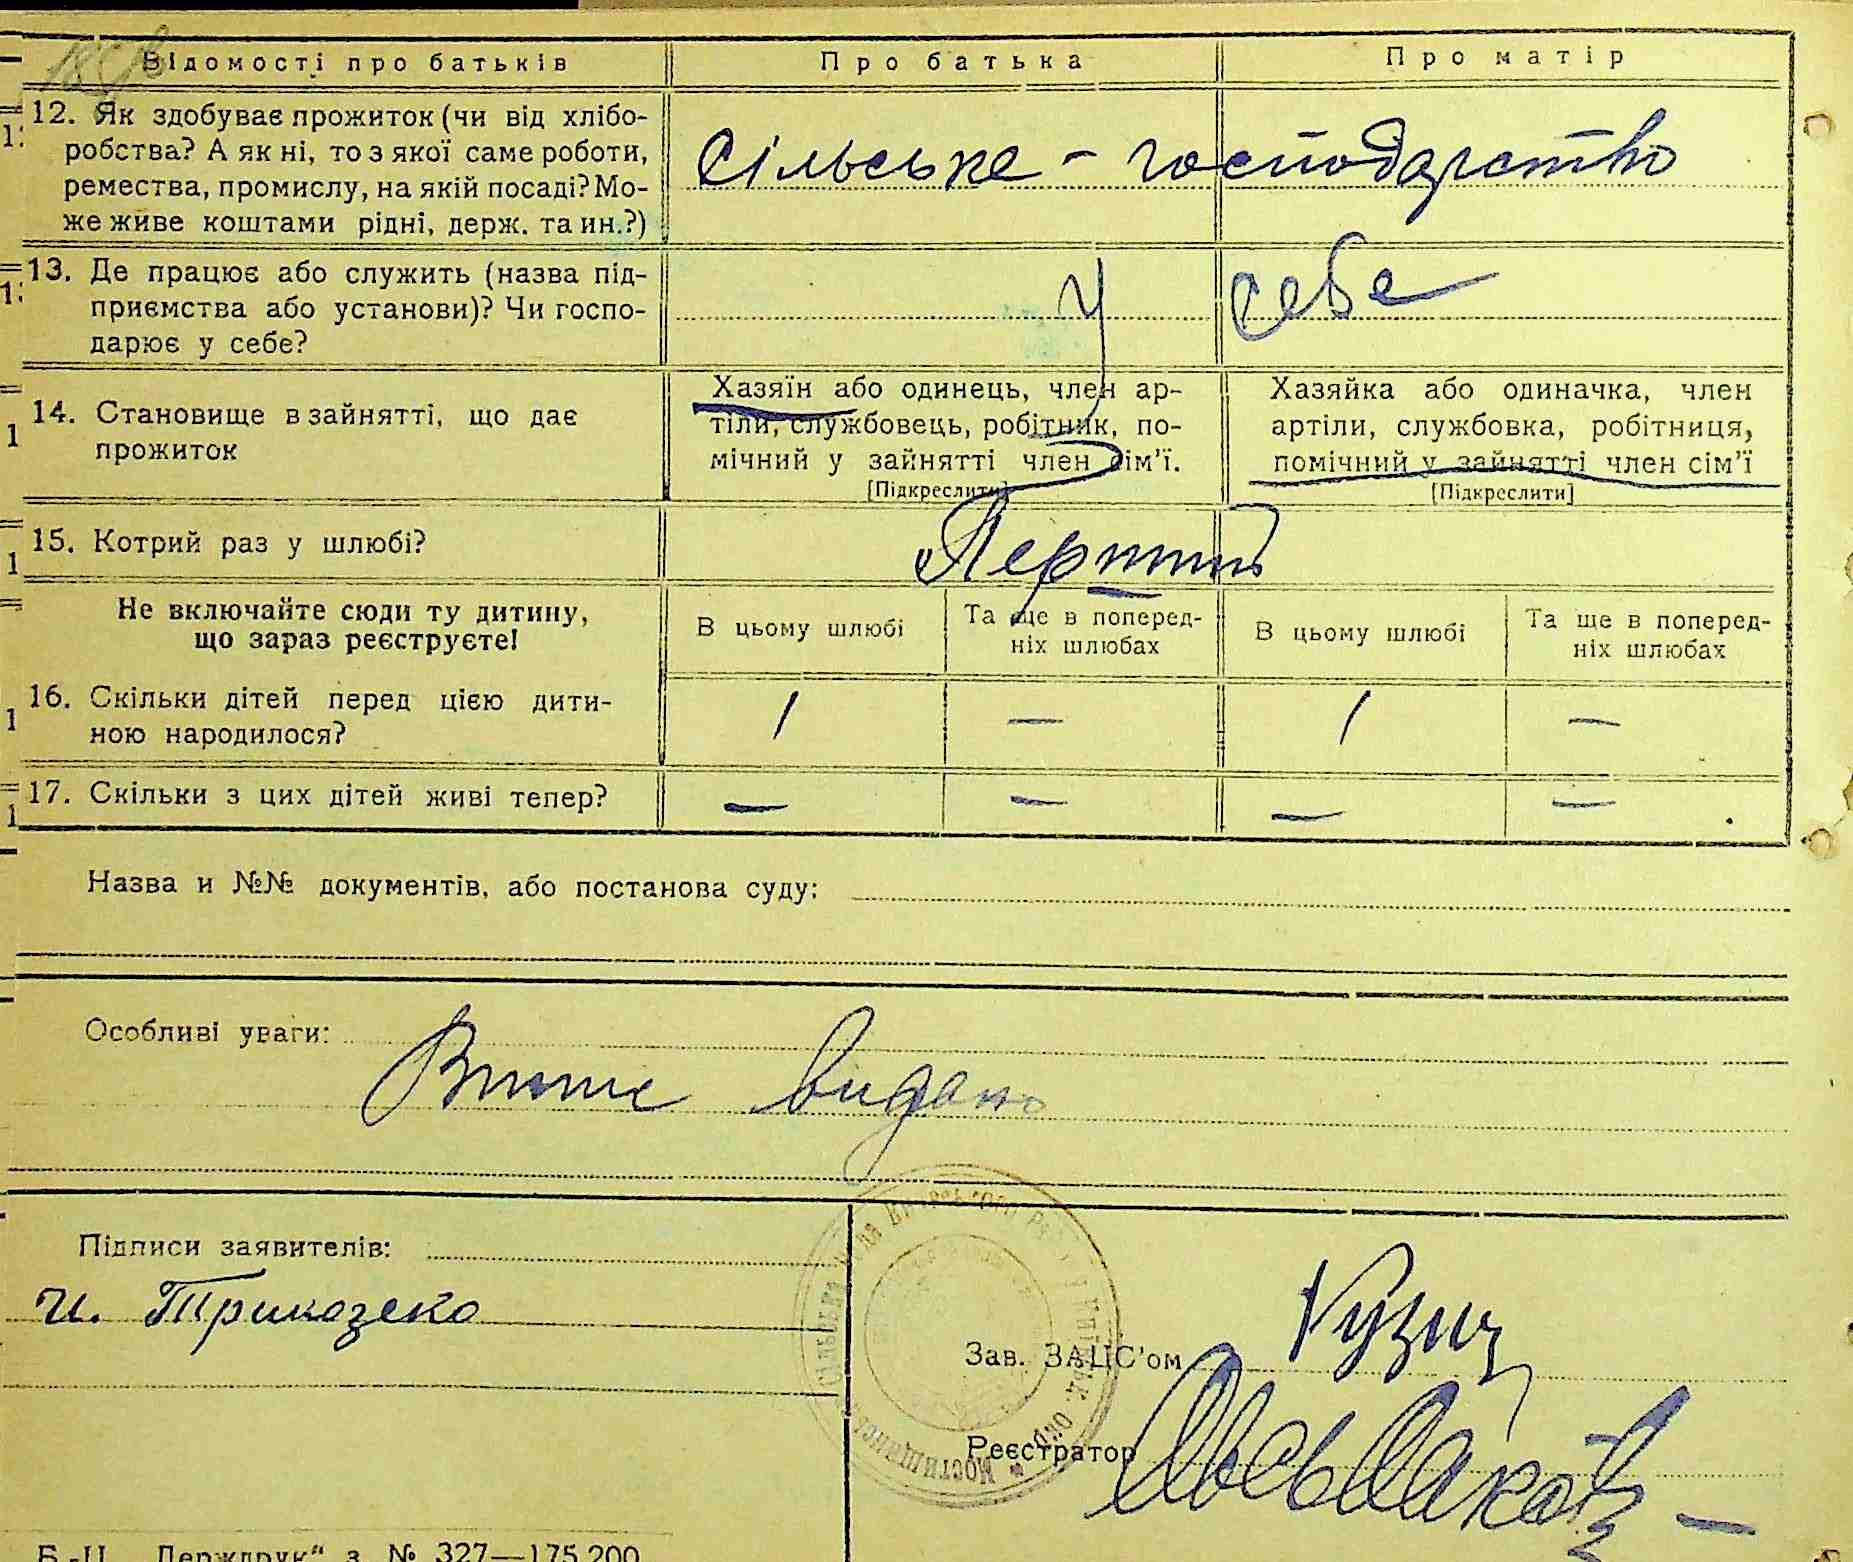 Відомості про батьків
Про батька
Про матір
12. Як здобуває прожиток (чи від хлібо-
робства? А як ні, то з якої саме роботи,
ремества, промислу, на якій посаді? Мо-
же живе коштами рідні, держ. та ин.?)
Сільське - господарство
13. Де працює або служить (назва під-
приємства або установи)? Чи госпо-
дарює у себе?
у себе
14. Становище в зайнятті, що дає
прожиток
Хазяїн або одинець, член ар-
тіли, службовець, робітник, по-
мічний у зайнятті член сім'ї.
[Підкреслити]
Хазяйка або одиначка, член
артіли, службовка, робітниця,
помічний у зайнятті член сім'ї
[Підкреслити]
15. Котрий раз у шлюбі?
Перший
Не включайте сюди ту дитину,
що зараз реєструєте!
В цьому шлюбі
Та ще в поперед-
ніх шлюбах
В цьому шлюбі
Та ще в поперед-
ніх шлюбах
16. Скільки дітей перед цією дити-
ною народилося?
1 — 1 —
17. Скільки з цих дітей живі тепер?
— — — —
Назва и №№ документів, або постанова суду:
Особливі уваги:
видано
Підписи заявителів:
И.
Зав. ЗАЦС'ом
Реєстратор
Б.-Ц. „Держдрук“ з. № 327—175.200